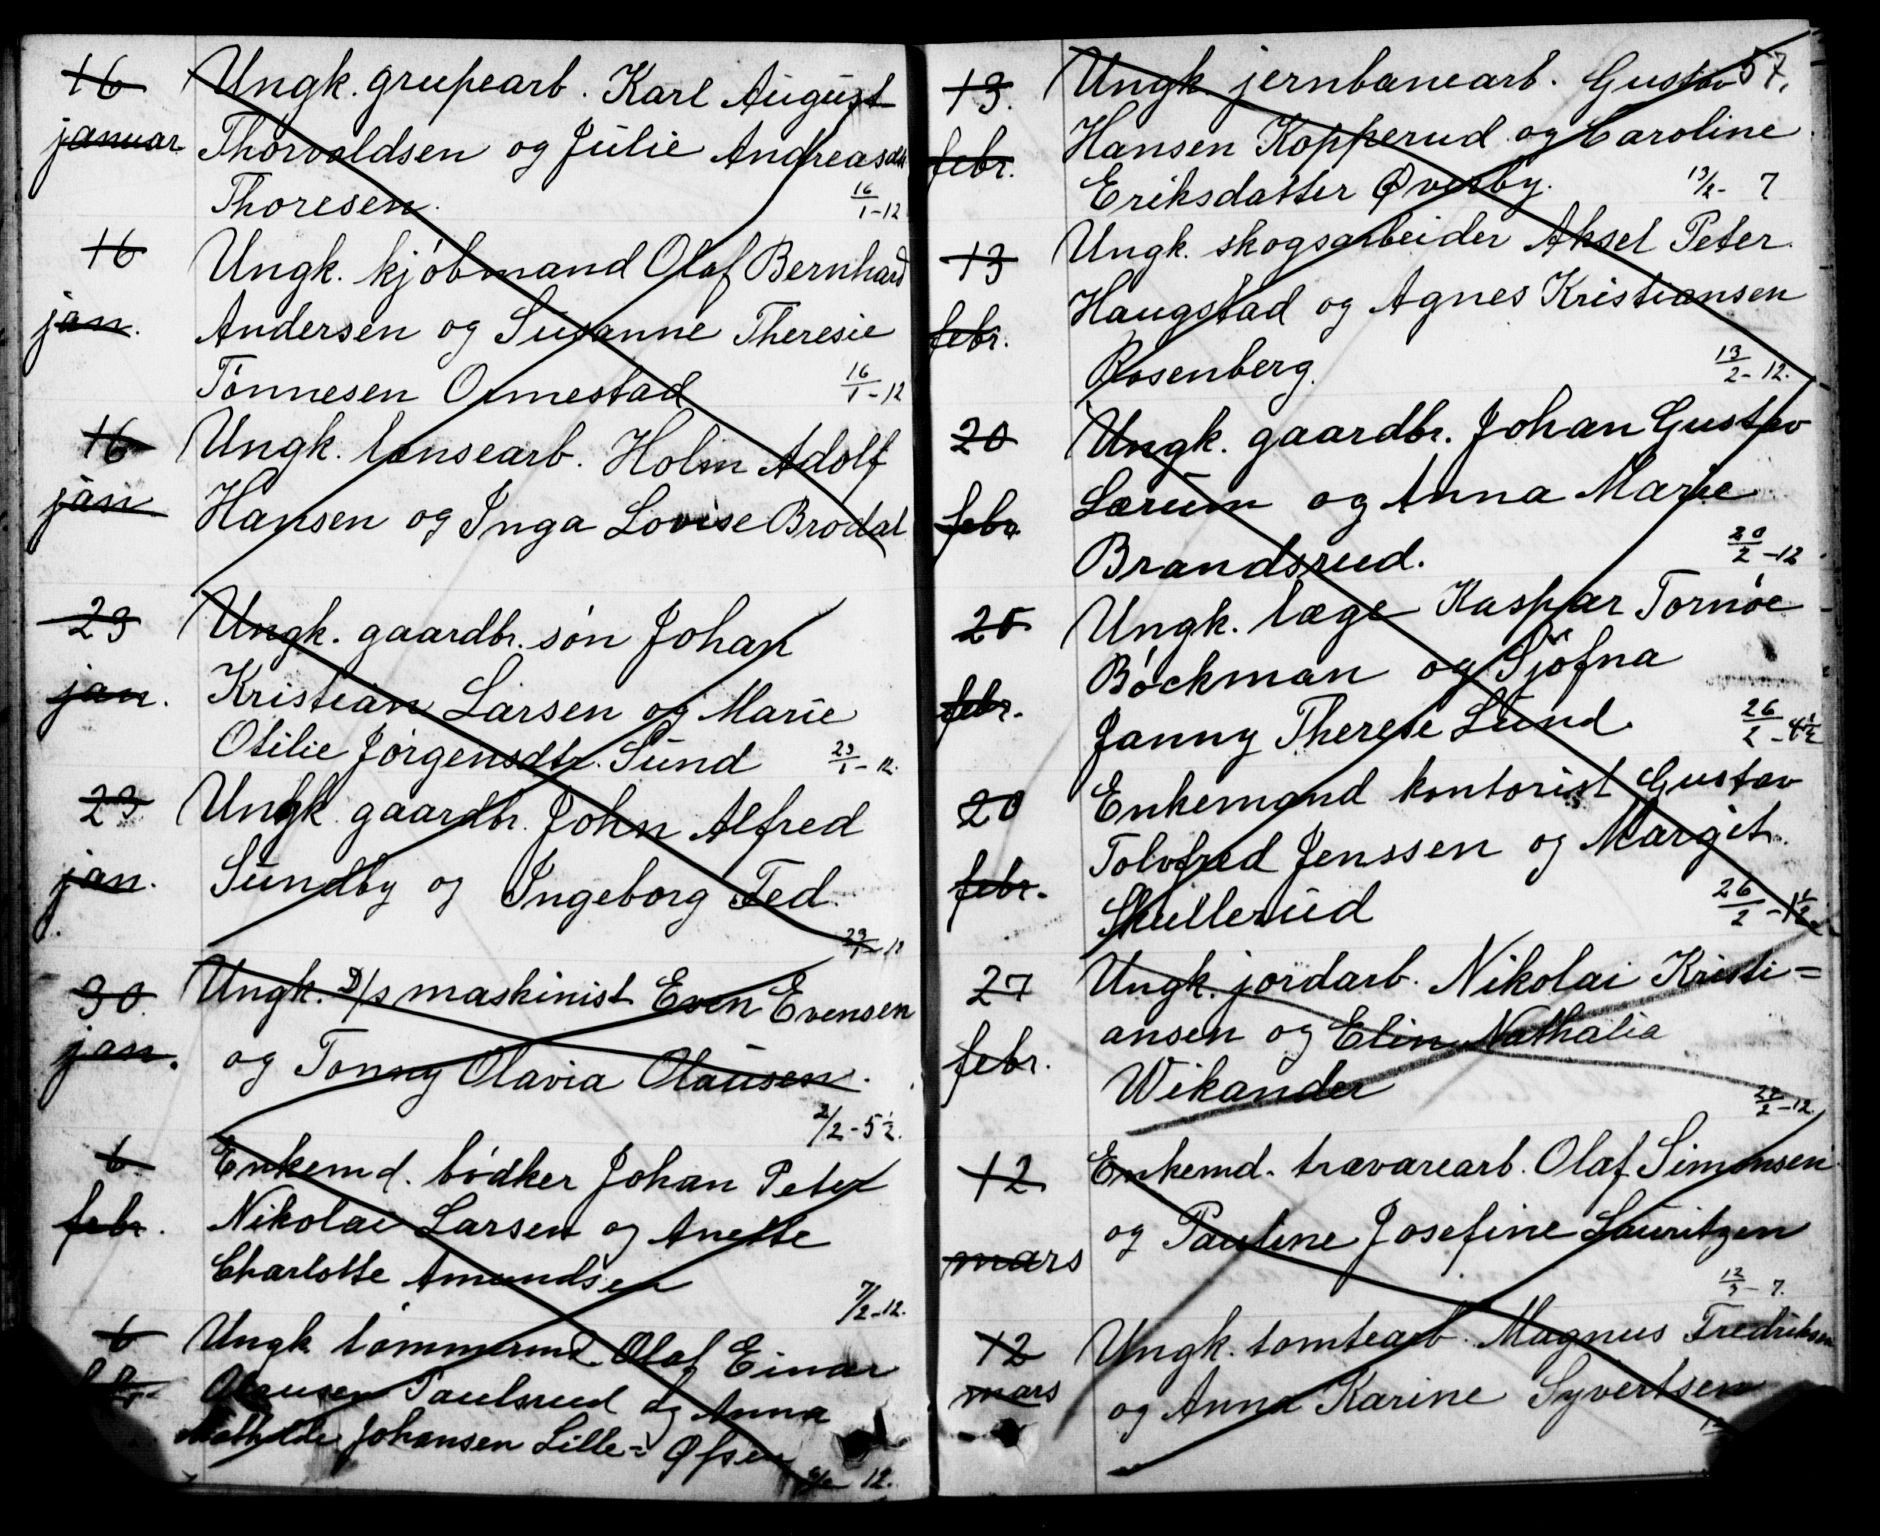 16 Ungk. grupearb. Karl August
januar Thorvaldsen og Julie Andreasdtr
Thoresen. 16/1-12
16 Ungk. kjøbmand Olaf Bernhard
jan. Andersen og Susanne Theresie
Tønnesen Ormestad 16/1-12
16 Ungk. lænsearb. Holm Adolf
jan Hansen og Inga Lovise Brodal
23 Ungk. gaardbr. søn Johan
jan. Kristian Larsen og Marie
Otilie Jørgensdtr. Sund 23/1-12.
23 Ungk. gaardbr. John Alfred
jan. Sundby og Ingeborg Ted.
23/1-12
30. Ungk. D/s maskinist Even Evensen
jan. og Tonny Olavia Olausen.
2/2-5½.
6 Enkemd. bødker Johan Peter
febr. Nikolai Larsen og Anette
Charlotte Amundsen
7/2-12.
6 Ungk tømmermd. Olaf Einar
Olausen Paulsrud og Anna
Mathilde Johansen Lille=Øfsen
6/2 12.
57.
13. Ungk. jernbanearb. Gustav
febr. Hansen Kopperud og Caroline
Eriksdatter Øverby. 13/2- 7
13 Ungk. skogsarbeider Aksel Peter
febr. Haugstad og Agnes Kristiansen
Rosenberg. 13/2-12.
20 Ungk. gaardbr. Johan Gustav
febr Lærum og Anna Marie
Brandsrud. 20/2-12
Ungk. læge Kaspar Tornøe
febr. Bøckman og Sjøfna
Janny Therese Lund. 26/2-4½
20 Enkemand kontorist Gustav
febr. Tolvfred Jenssen og Margit
Skullerud 26/2-1½
27 Ungk. jordarb. Nikolai Kristi=
febr. ansen og Elin Nathalia
Wikander 27/2-12.
12 Enkemd. trævarearb. Olaf Simensen
mars og Pauline Josefine Lauritzen
12/3-7.
12 Ungk. tomtearb. Magnus Fredriksen
mars og Anna Karine Syvertsen